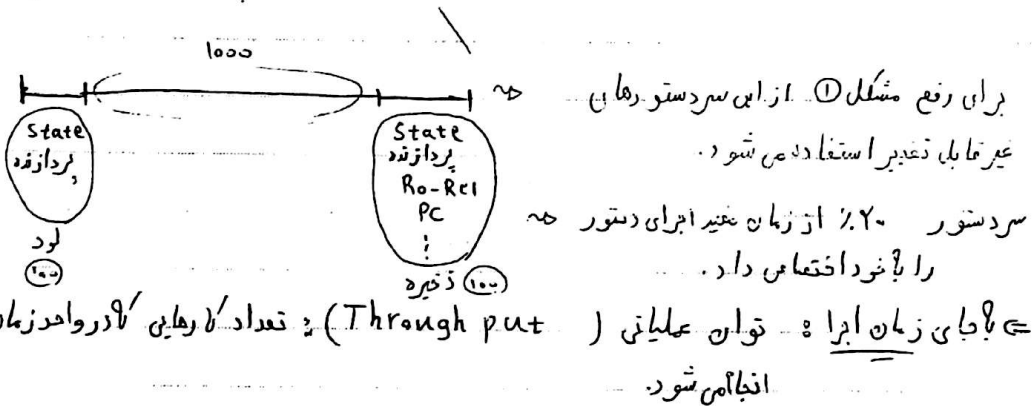 1000
State
پردازنده
لود
۱۰۰
State
پردازنده
R0-R31
PC
⋮
ذخیره ۱۰۰
برای رفع مشکل ① از این سردستورهای
غیر قابل تغییر استفاده می‌شود.
سردستور ۲۰٪ از زمان اجرای دستور
را به خود اختصاص داد.
⇐ به جای زمان اجرا : توان عملیاتی (Through put) : تعداد کارهایی که در واحد زمان
انجام می‌شود.